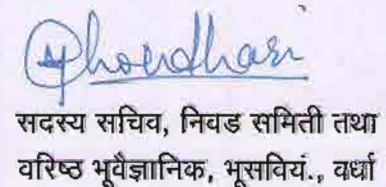 Choudhari
सदस्य सचिव, निवड समिती तथा
वरिष्ठ भूवैज्ञानिक, भूसवियं., वर्धा